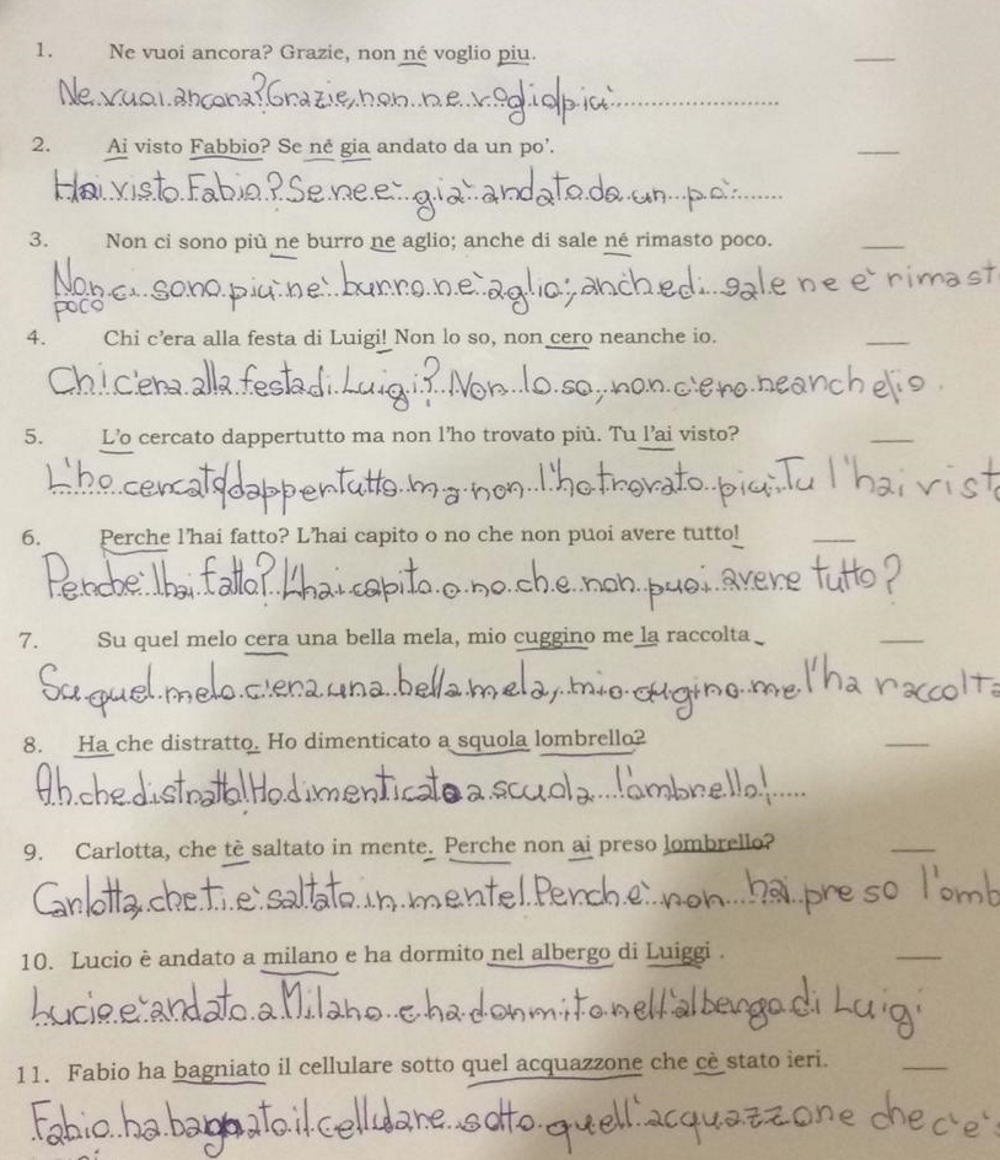 1. Ne vuoi ancora? Grazie, non né voglio piu.
Ne vuoi ancora? Grazie, non ne voglio più
2. Ai visto Fabbio? Se né gia andato da un po'.
Hai visto Fabio? Se ne e' già andato da un po'
3. Non ci sono più ne burro ne aglio; anche di sale né rimasto poco.
Non ci sono più nè burro nè aglio; anche di sale ne è rimast
poco
4. Chi c'era alla festa di Luigi! Non lo so, non cero neanche io.
Chi c'era alla festa di Luigi? Non lo so, non c'ero neanche io.
5. L'o cercato dappertutto ma non l'ho trovato più. Tu l'ai visto?
L'ho cercato dappertutto ma non l'ho trovato più. Tu l'hai visto
6. Perche l'hai fatto? L'hai capito o no che non puoi avere tutto!
Perchè l'hai fatto? L'hai capito o no che non puoi avere tutto?
7. Su quel melo cera una bella mela, mio cuggino me la raccolta
Su quel melo c'era una bella mela, mio cugino me l'ha raccolta
8. Ha che distratto. Ho dimenticato a squola lombrello?
Ah che distratto! Ho dimenticato a scuola l'ombrello!
9. Carlotta, che tè saltato in mente. Perche non ai preso lombrello?
Carlotta, che ti è saltato in mente! Perchè non hai preso l'omb
10. Lucio è andato a milano e ha dormito nel albergo di Luiggi .
Lucio è andato a Milano e ha dormito nell'albergo di Luigi
11. Fabio ha bagniato il cellulare sotto quel acquazzone che cè stato ieri.
Fabio ha bagnato il cellulare sotto quell'acquazzone che c'è